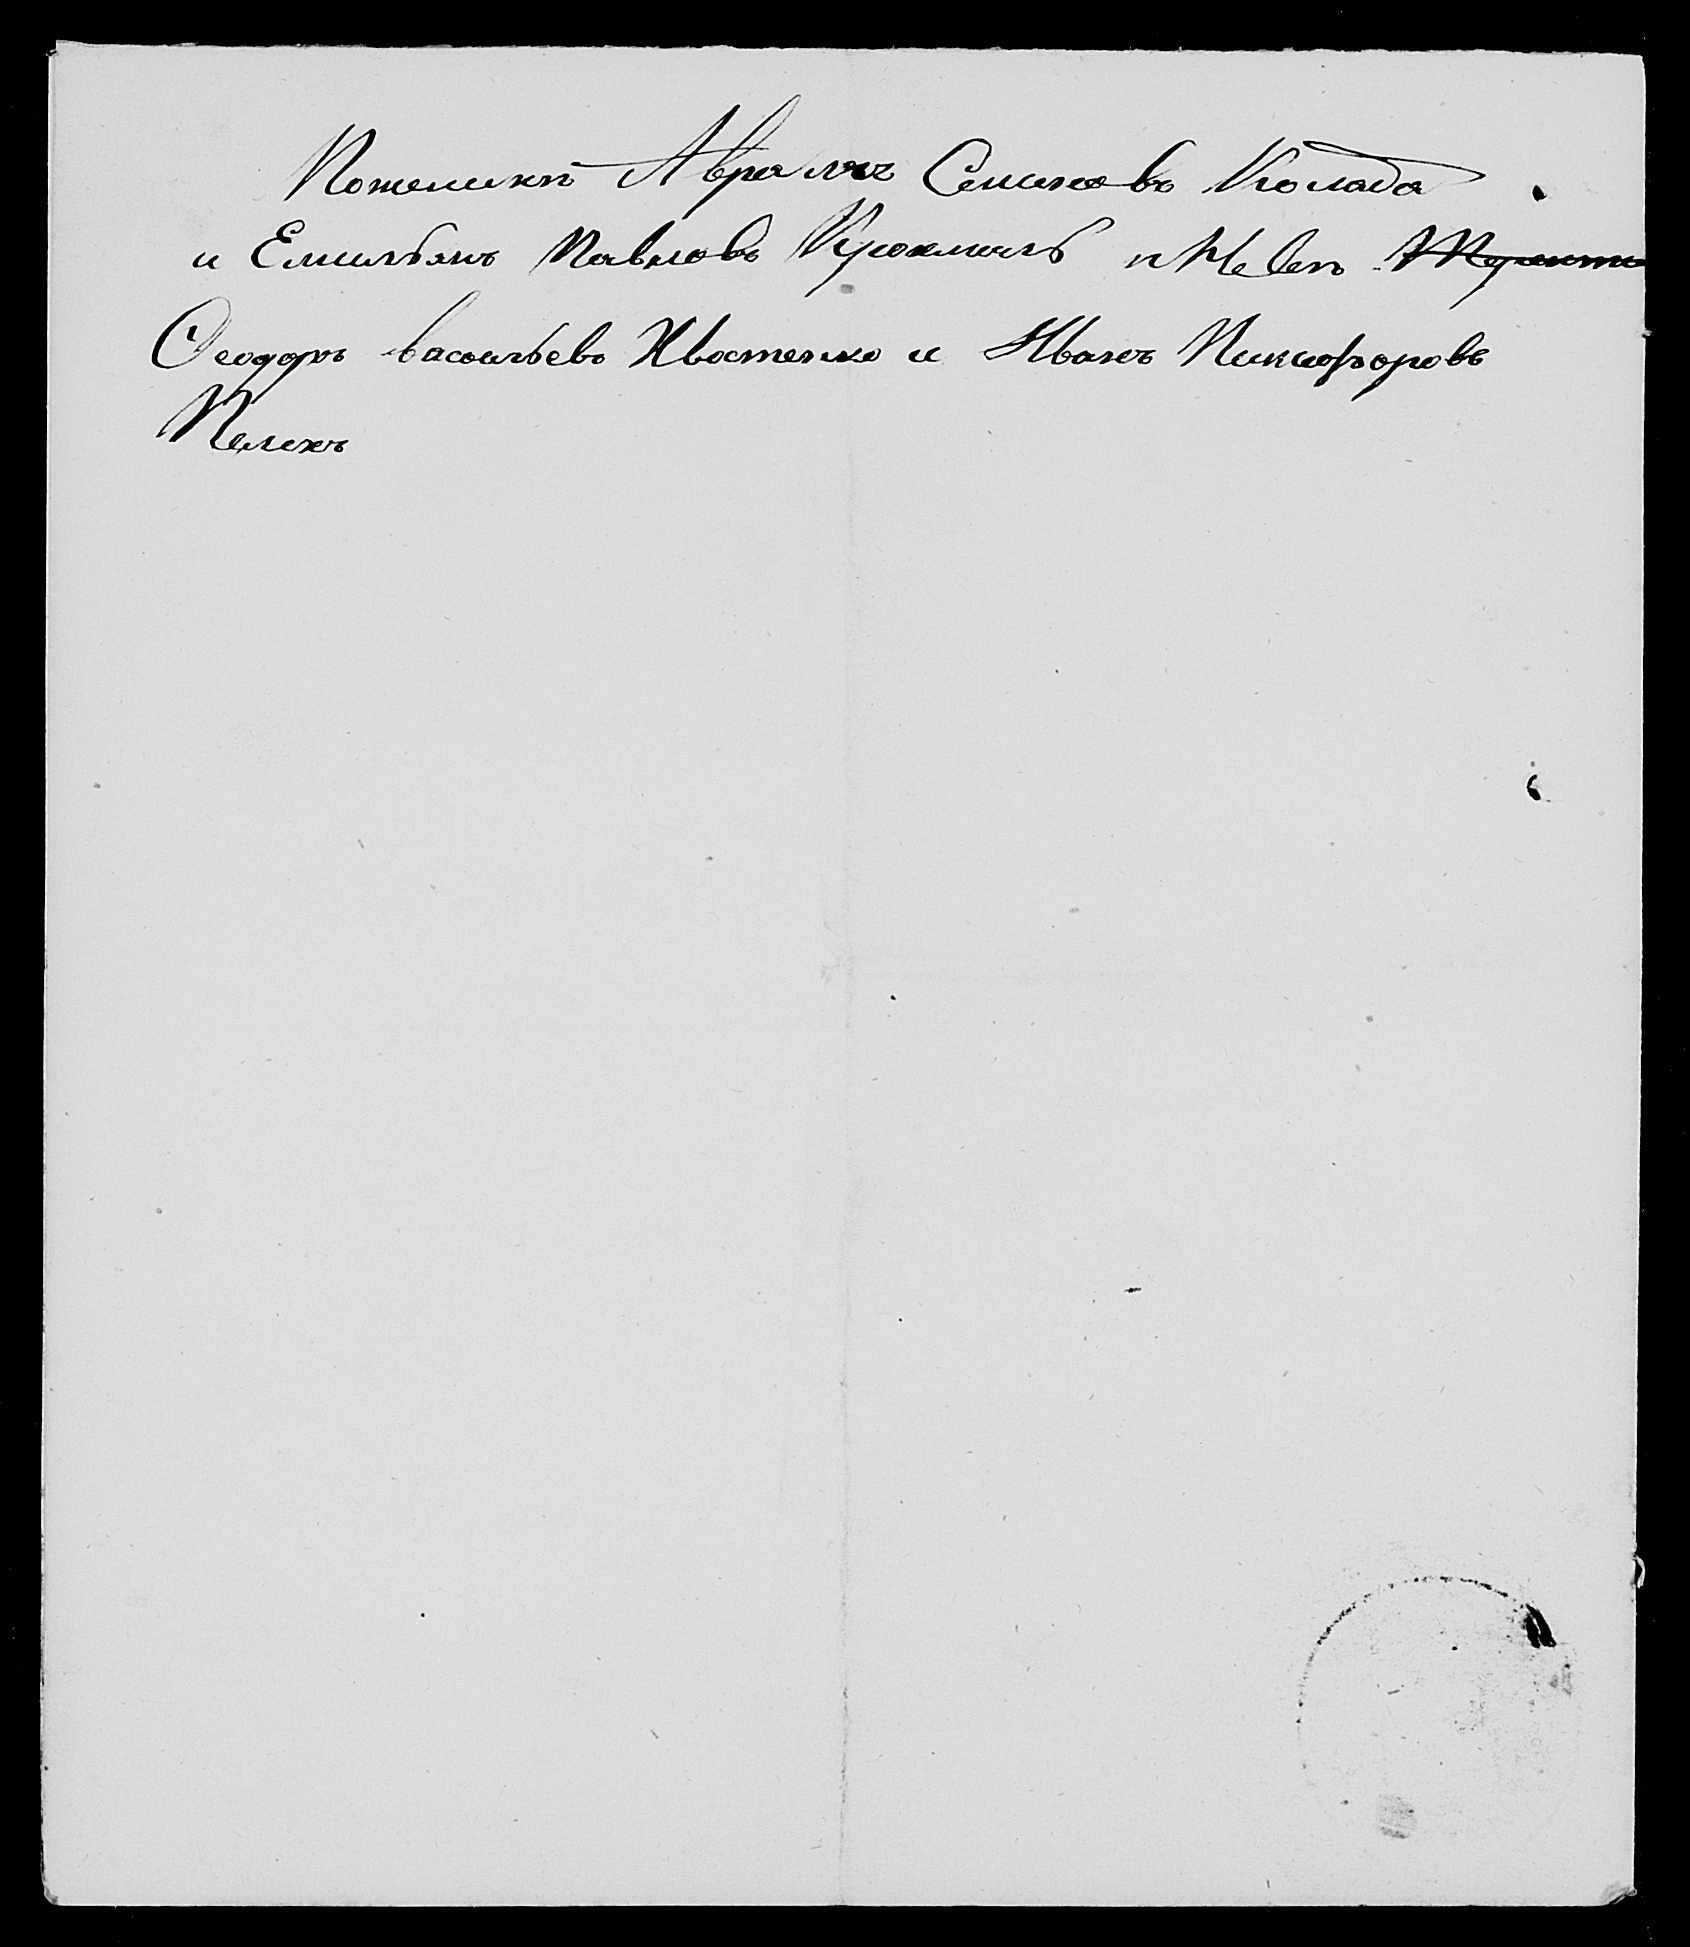 Пожениху Аврамъ Семеновъ Коляда
и Емильянъ Павловъ Крохмаль и Невп
Феодоръ васильевъ Хвостенко и Иванъ Никифоровъ
Пелехъ